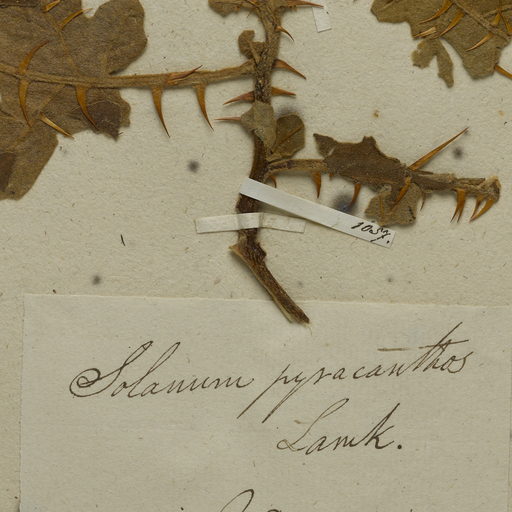 1057.
Solanum pyracanthos
Lamk.